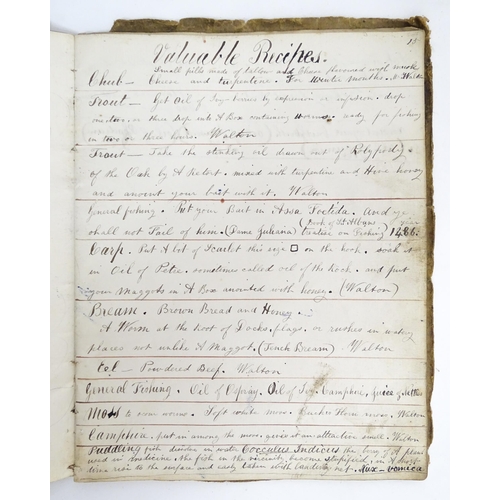 15
Valuable Recipes.
Small pills made of tallow and Cheese flavoured with musk
Chub — Cheese and turpentine. For winter months.
Trout — Get Oil of Ivy-berries by expression or infusion. drop
one two or three drops into A Box containing worms. ready for fishing
in two or three hours. Walton
Trout — Take the stinking oil drawn out of Polypody
of the Oak by A Retort. mixed with turpentine and Hive honey
and anoint your bait with it. Walton
General fishing. Put your Bait in Assa Foetida. And ye
shall not Fail of them. (Dame Juliana) (Book of St Albans treatise on Fishing) 1486.
Carp. Put A bit of Scarlet this size □ on the hook. soak it
in Oil of Petre. sometimes called oil of the Rock. and put
your Maggots in A Box anointed with honey. (Walton)
Bream. Brown Bread and Honey.
A Worm at the Root of Docks, flags, or rushes in watery
places not unlike A Maggot. (Tench Bream) Walton
Eel — Powdered Beef. Walton
General Fishing. Oil of Ospray. Oil of Ivy. Camphire, Juice of Nettles
Moss to scour worms. Soft white moss. Walton
Camphire, put in among the moss, gives it an attractive smell. Walton
Cocculus Indicus
used in medicine. the fish in the vicinity become stupefied,
rise to the surface and easily taken with Landing net. Nux-vomica